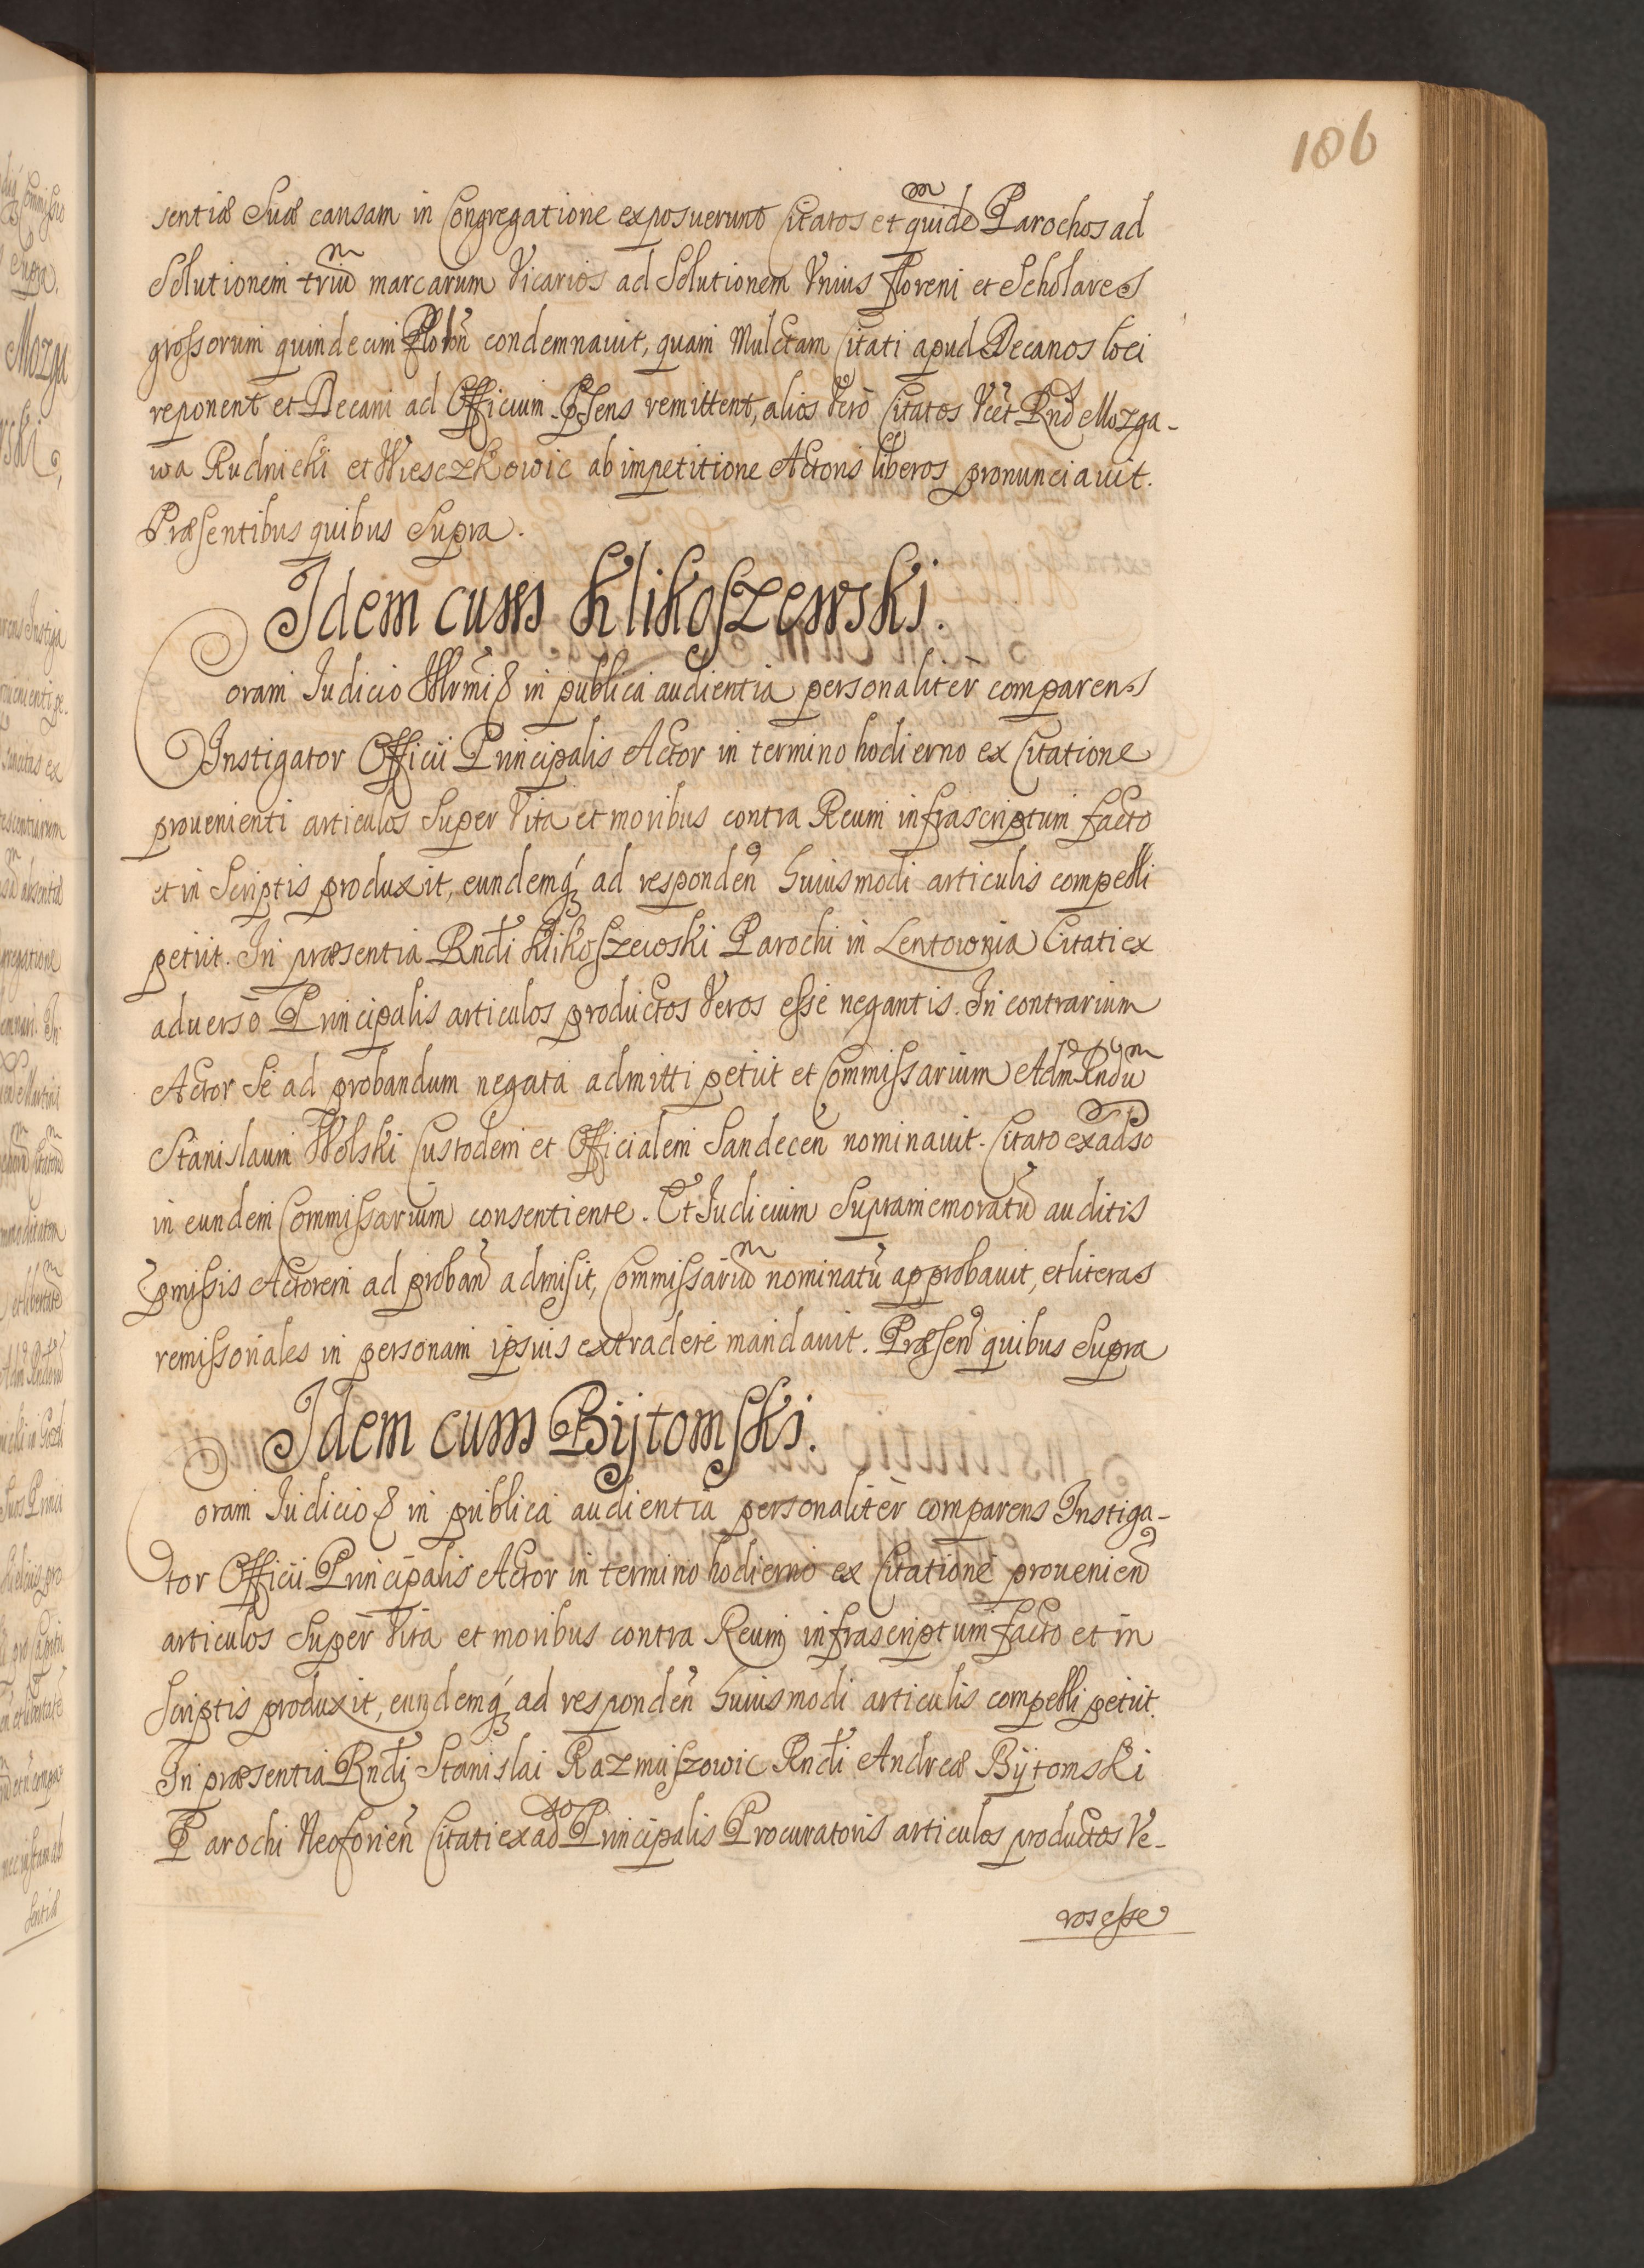 106
sentiæ suæ causam in Congregatione exposuerunt Citatos et quidē^m Parochos ad
Solutionem triū^m marcarum Vicarios ad Solutionem Vnius floreni et Scholares
grossorum quindecim Polon̄ condemnauit, quam Mulctam Citati apud Decanos loci
reponent et Decani ad Officium pn̄sens remittent, alios Vero Citatos Vcēt Rnd̄ Mozga-
wa Rudnicki et Wiesczkowic ab impetitione Actoris liberos pronunciauit.
Præsentibus quibus Supra.
Idem cum Klikoszewski.
Coram Iudicio Illrmi & in publica audientia personaliter comparens
Instigator Officii Principalis Actor in termino hodierno ex Citatione
prouenienti articulos Super Vita et moribus contra Reum infrascriptum facto
et in Scriptis produxit, eundemq́ ad responden̄ huiusmodi articulis compelli
petiit. In præsentia Rndi Klikoszewski Parochi in Lentownia Citati ex
aduerso Principalis articulos productos Veros esse negantis. In contrarium
Actor Se ad probandum negata admitti petiit et Commissarium Adm̄ Rndū^m
Stanislaum Wolski Custodem et Officialem Sandecen̄ nominauit. Citato ex adso
in eundem Commissarium consentiente. Et Iudicium Supramemoratū auditis
pmissis Actorem ad proban̄d admisit, Commissariū^m nominatū approbauit, et literas
remissoriales in personam ipsius extradere mandauit. Præsen̄ quibus Supra
Idem cum Bijtomski.
Coram Iudicio & in publica audientia personaliter comparens Instiga-
tor Officii Principalis Actor in termino hodierno ex Citatione prouenien̄
articulos Super Vita et moribus contra Reum infrascriptum facto et in
Scriptis produxit, eundemq́ ad responden̄ huiusmodi articulis compelli petiit.
In præsentia Rndi Stanislai Razmuszowic Rndi Andreæ Bijtomski
Parochi Neoforien̄ Citati ex ad^so Principalis Procuratoris articulos productos Ve-
ros esse